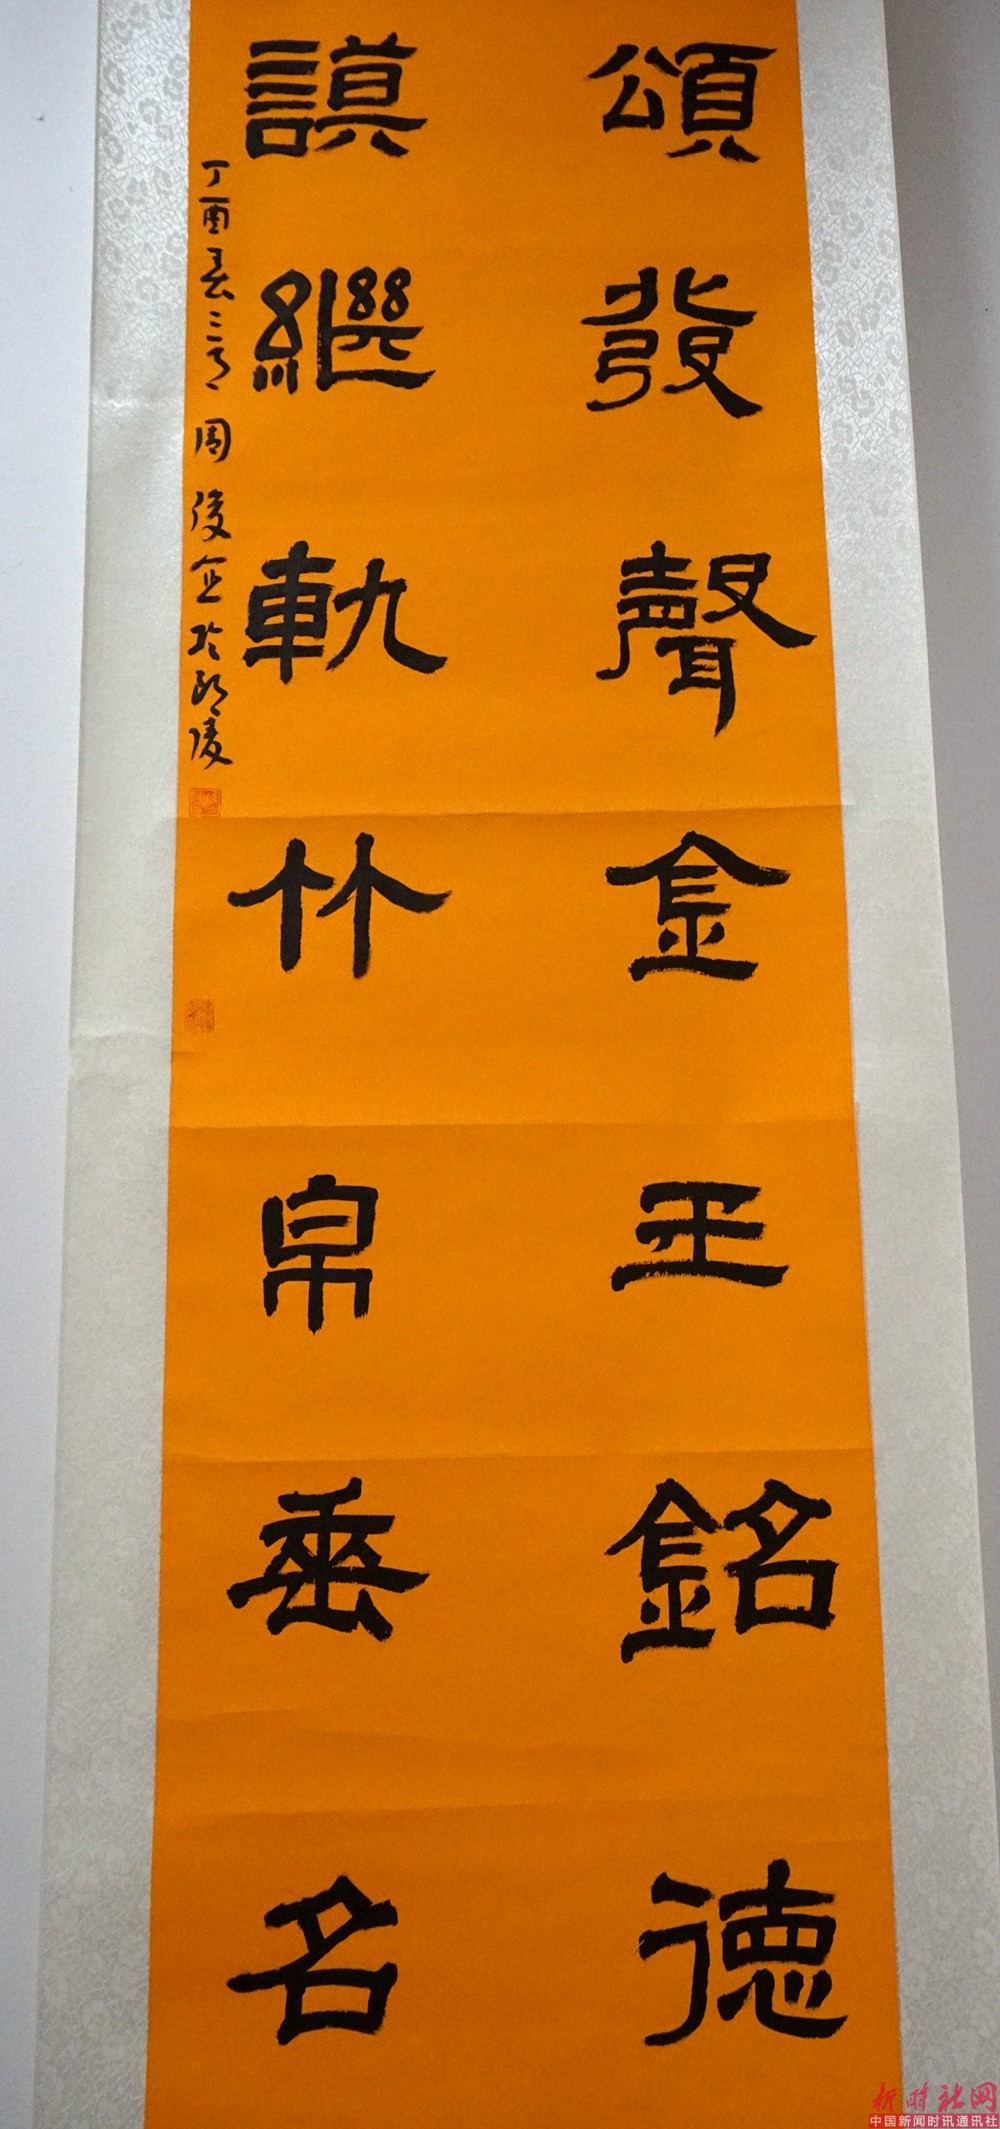 頌發聲金玉銘德
謨繼軌竹帛垂名
丁酉春三月周俊企於邵陵
新时社网
中国新闻时讯通讯社